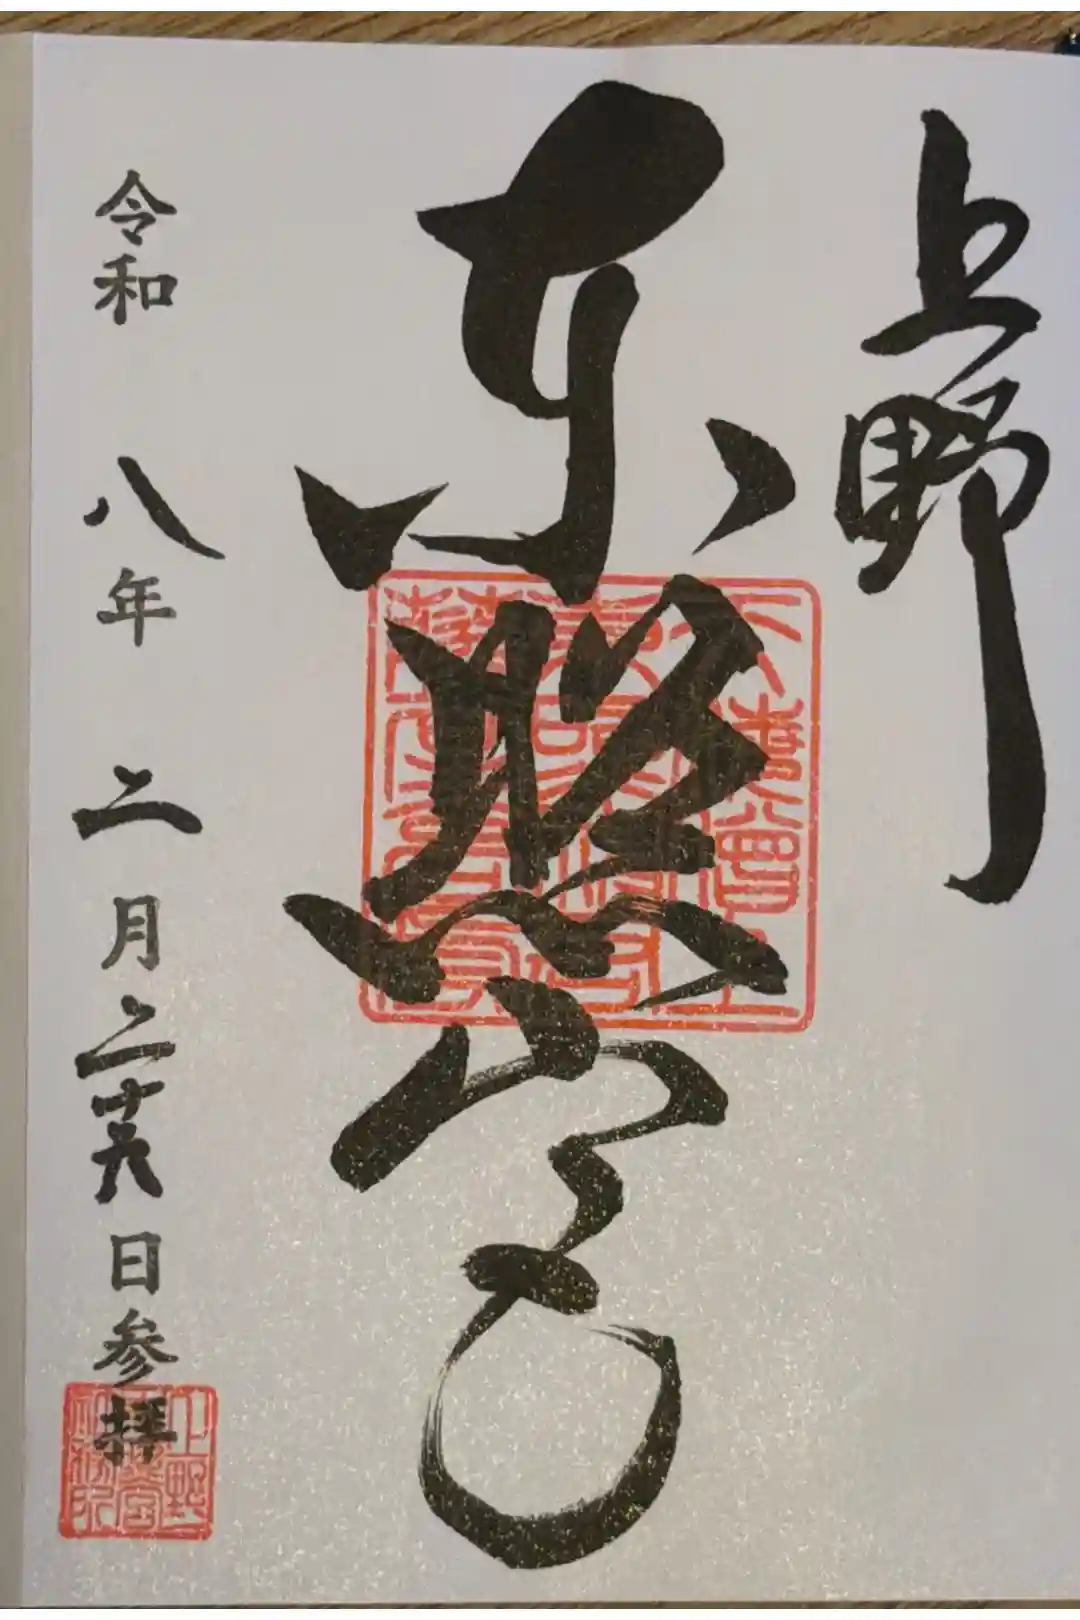 上野
東照宮
令和八年二月二十六日参拝